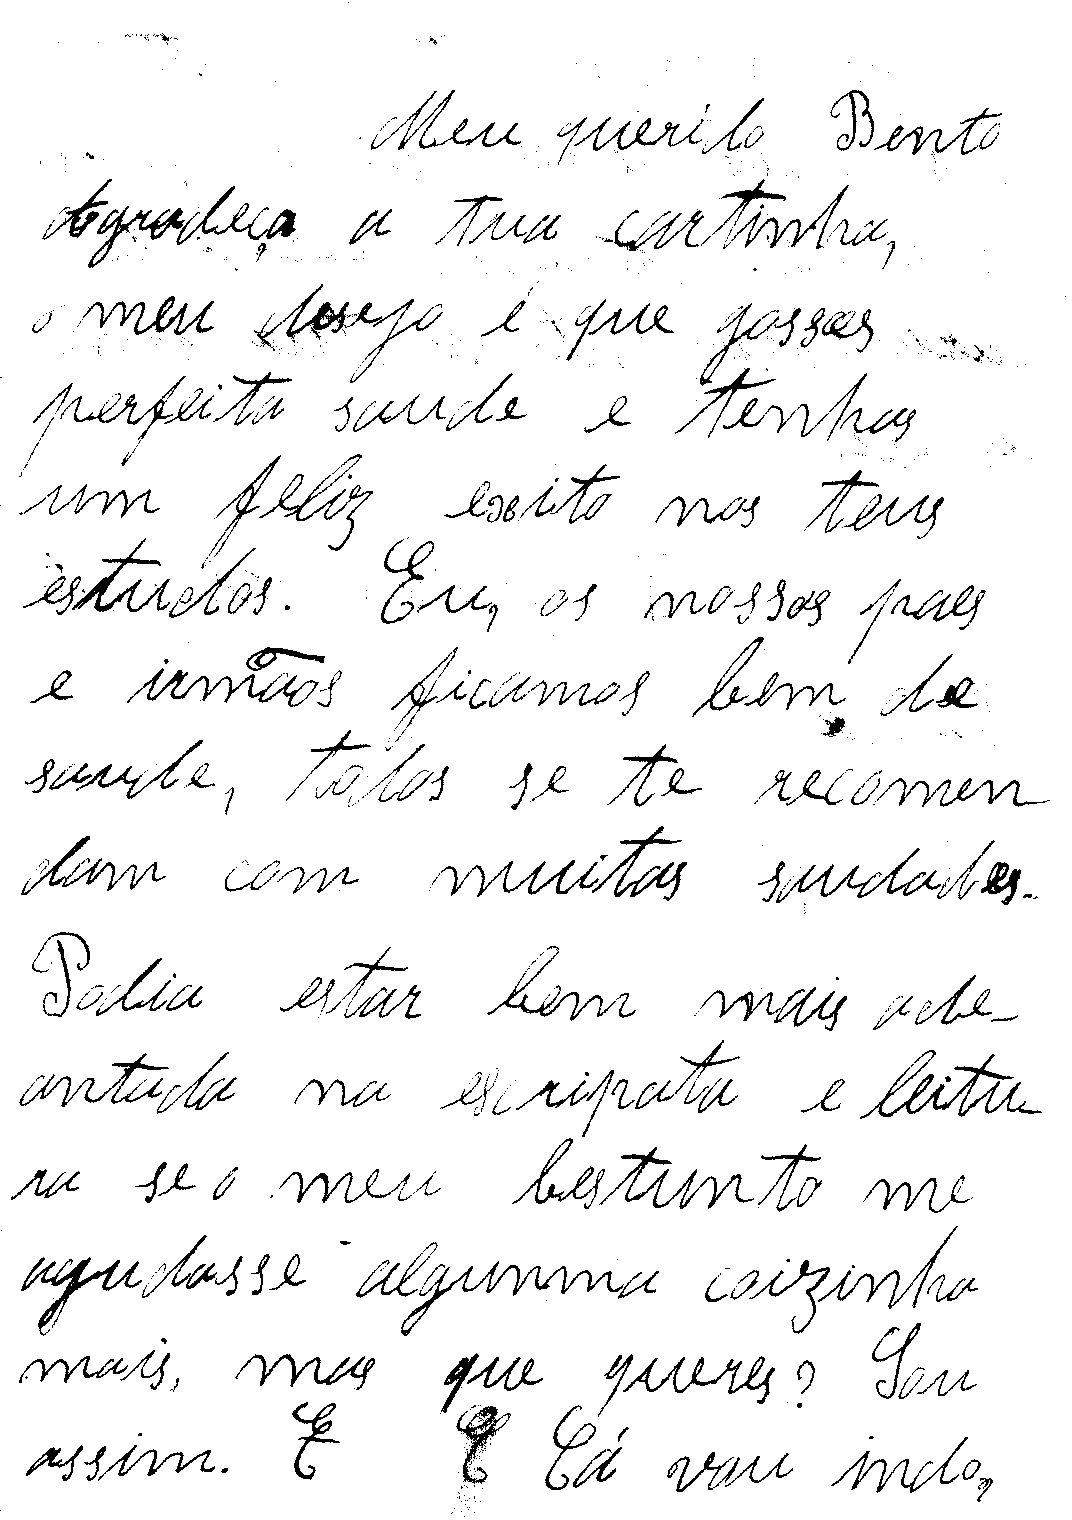 Meu querido Bento
Agradeça a tua cartinha,
o meu desejo é que gosses
perfeita saude e tenhas
um feliz exito nos teus
estudos. Eu, os nossos paes
e irmãos ficamos bem de
saude, todos se te recomen
dam com muitas saudades.
Podia estar bem mais ade-
antada na escripata e leitu-
ra se o meu bestunto me
agudasse algunma coizinha
mais, mas que queres? Sou
assim. E E Cá vou indo,